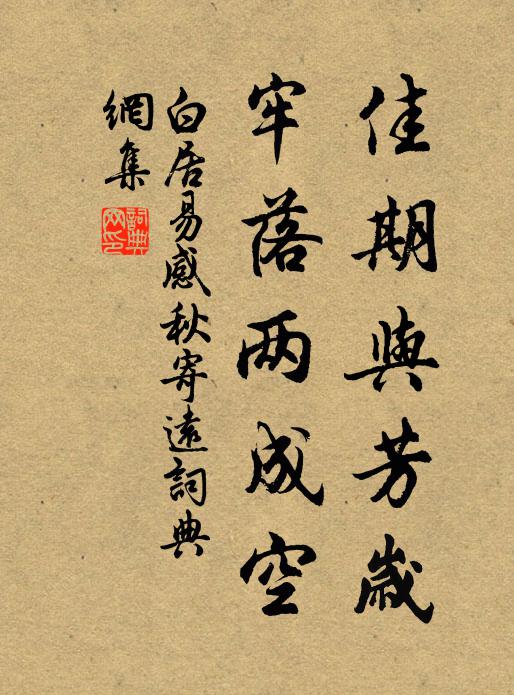 佳期與芳歲
牢落两成空
白居易感秋寄遠詞典
網集
詞典
网印